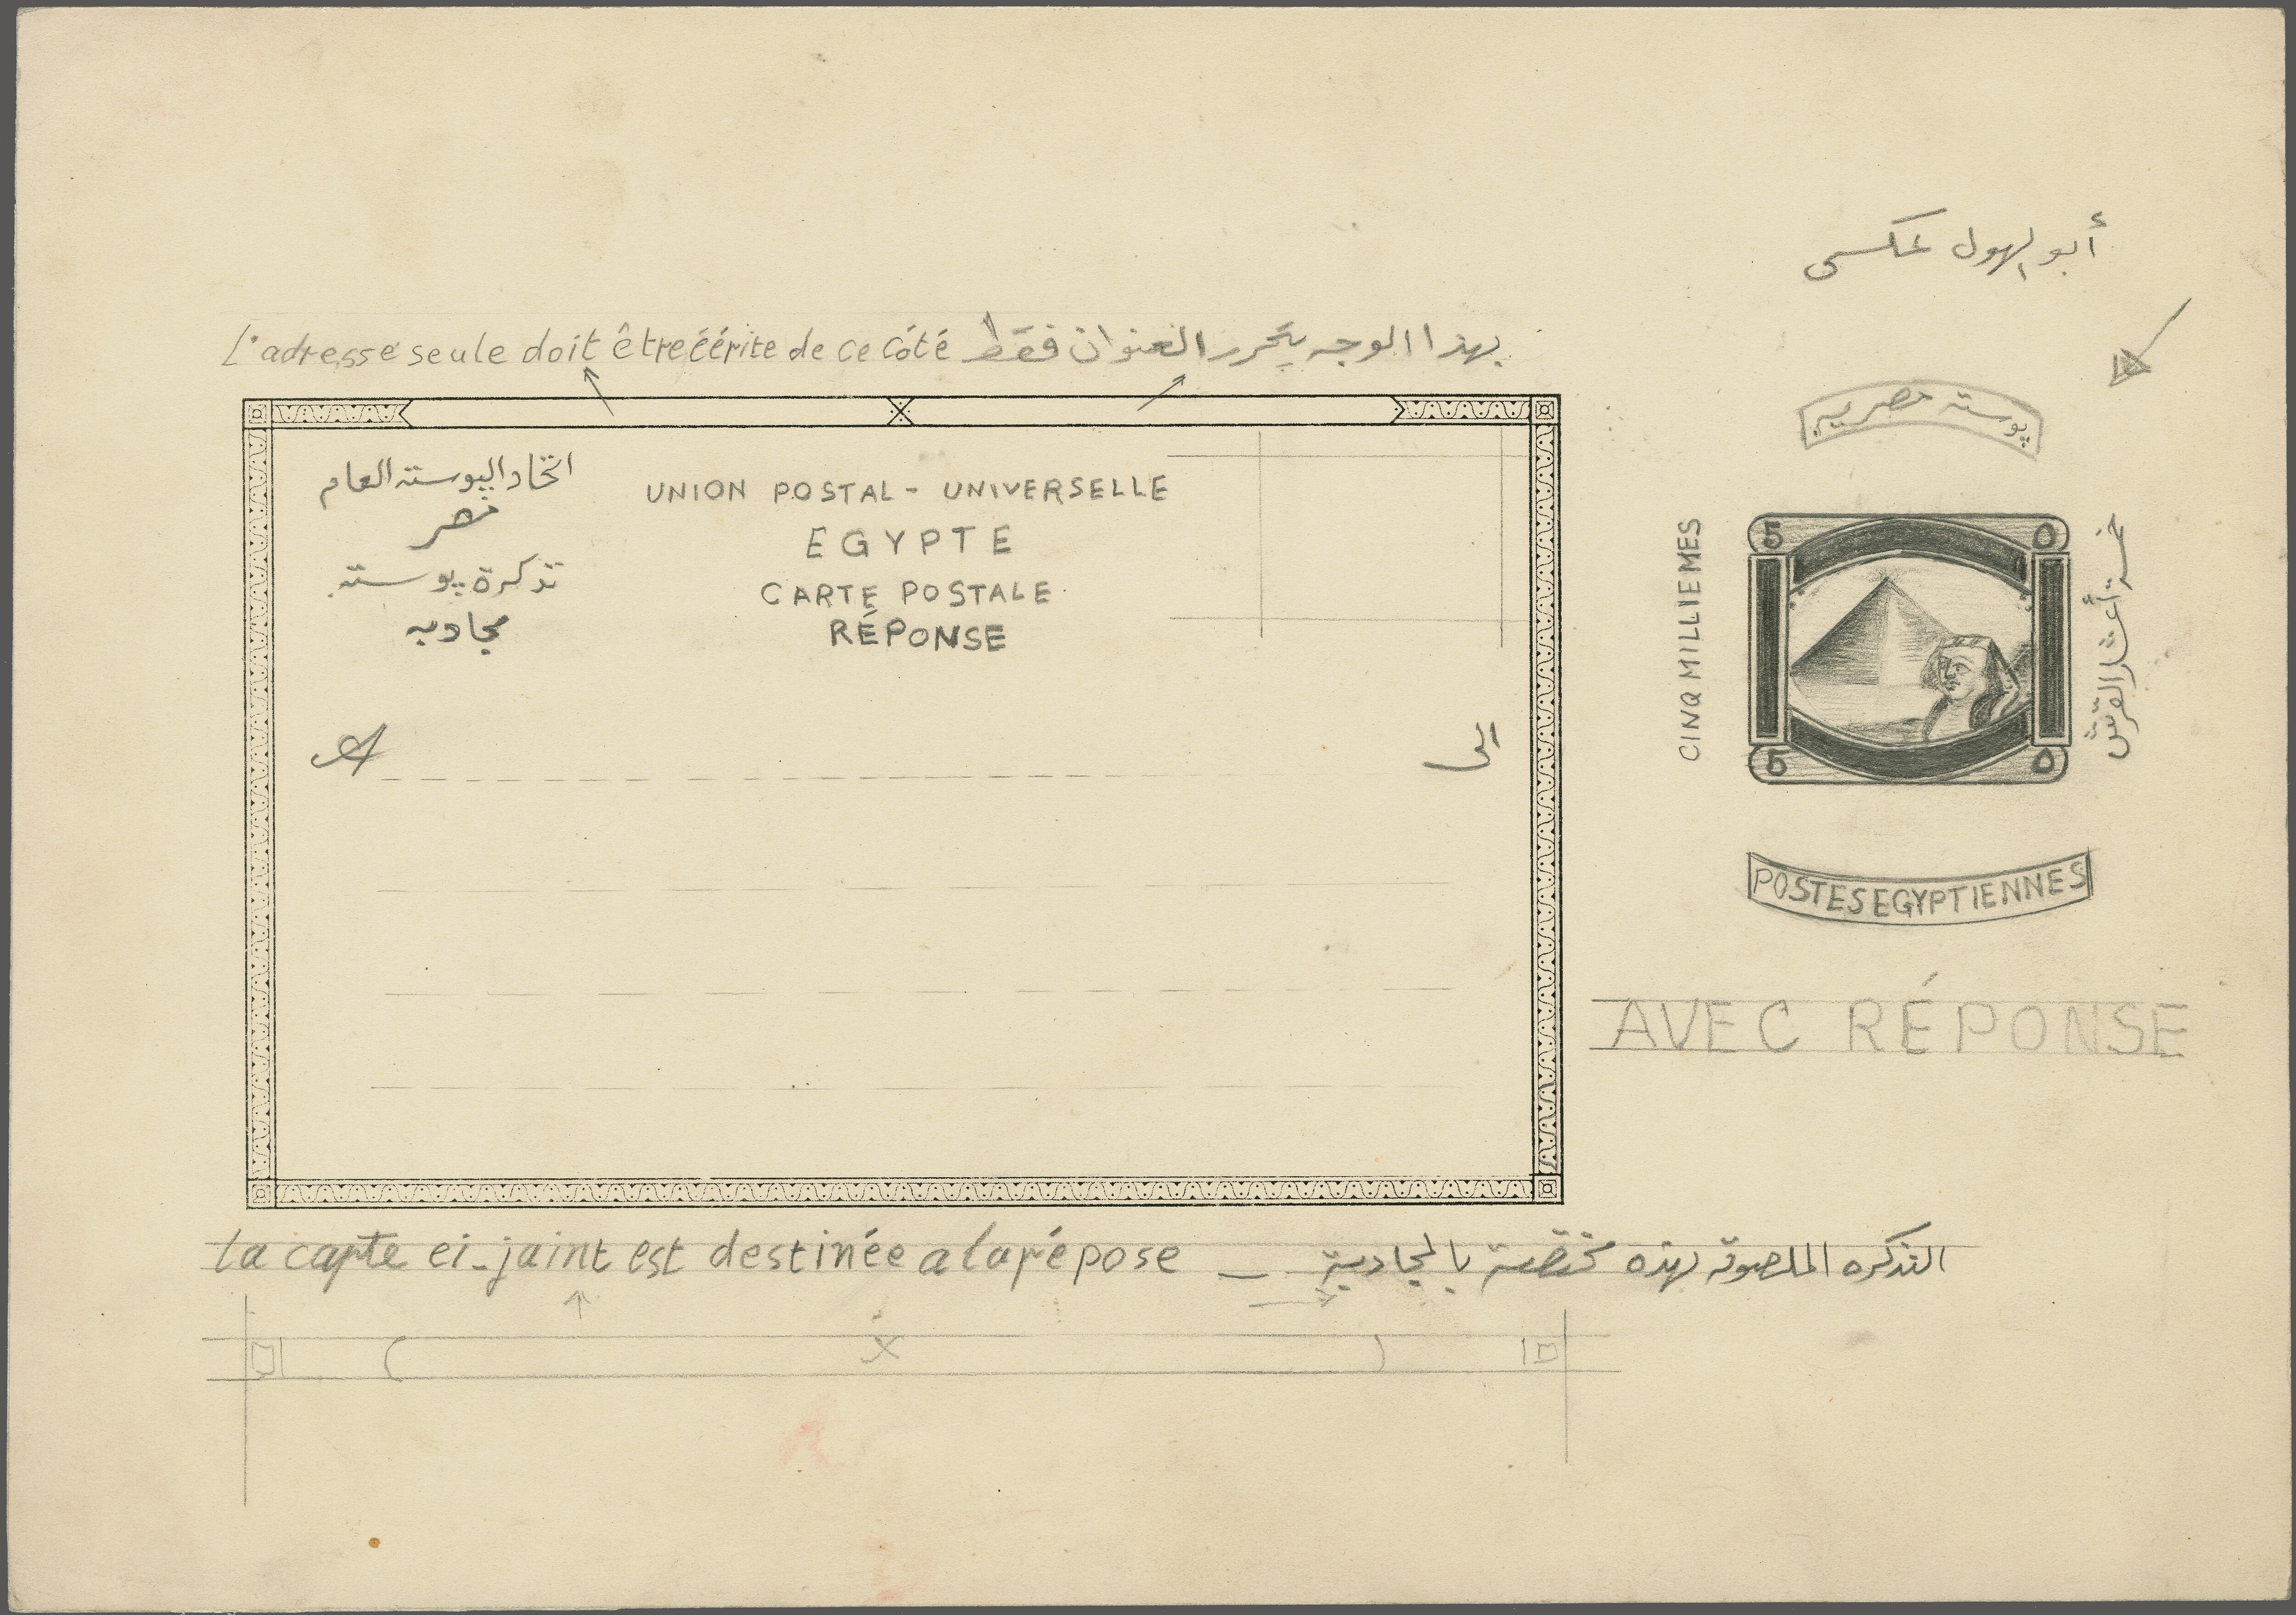 أبو الهول عكسى
L'adresse seule doit être éérite de ce côté بهذا الوجه يتحرر العنوان فقط
پوسته مصريه
اتحاد الپوسته العام
مصر
تذكرة پوسته
مجاوبه
UNION POSTAL - UNIVERSELLE
EGYPTE
CARTE POSTALE
RÉPONSE
CINQ MILLIEMES
5 ٥
5 ٥
خمسة أعشار القرش
A الى
POSTES EGYPTIENNES
AVEC RÉPONSE
La carte ei-jaint est destinée a la répose — التذكره الملصوقه بهذه مختصة بالمجاوبة
X